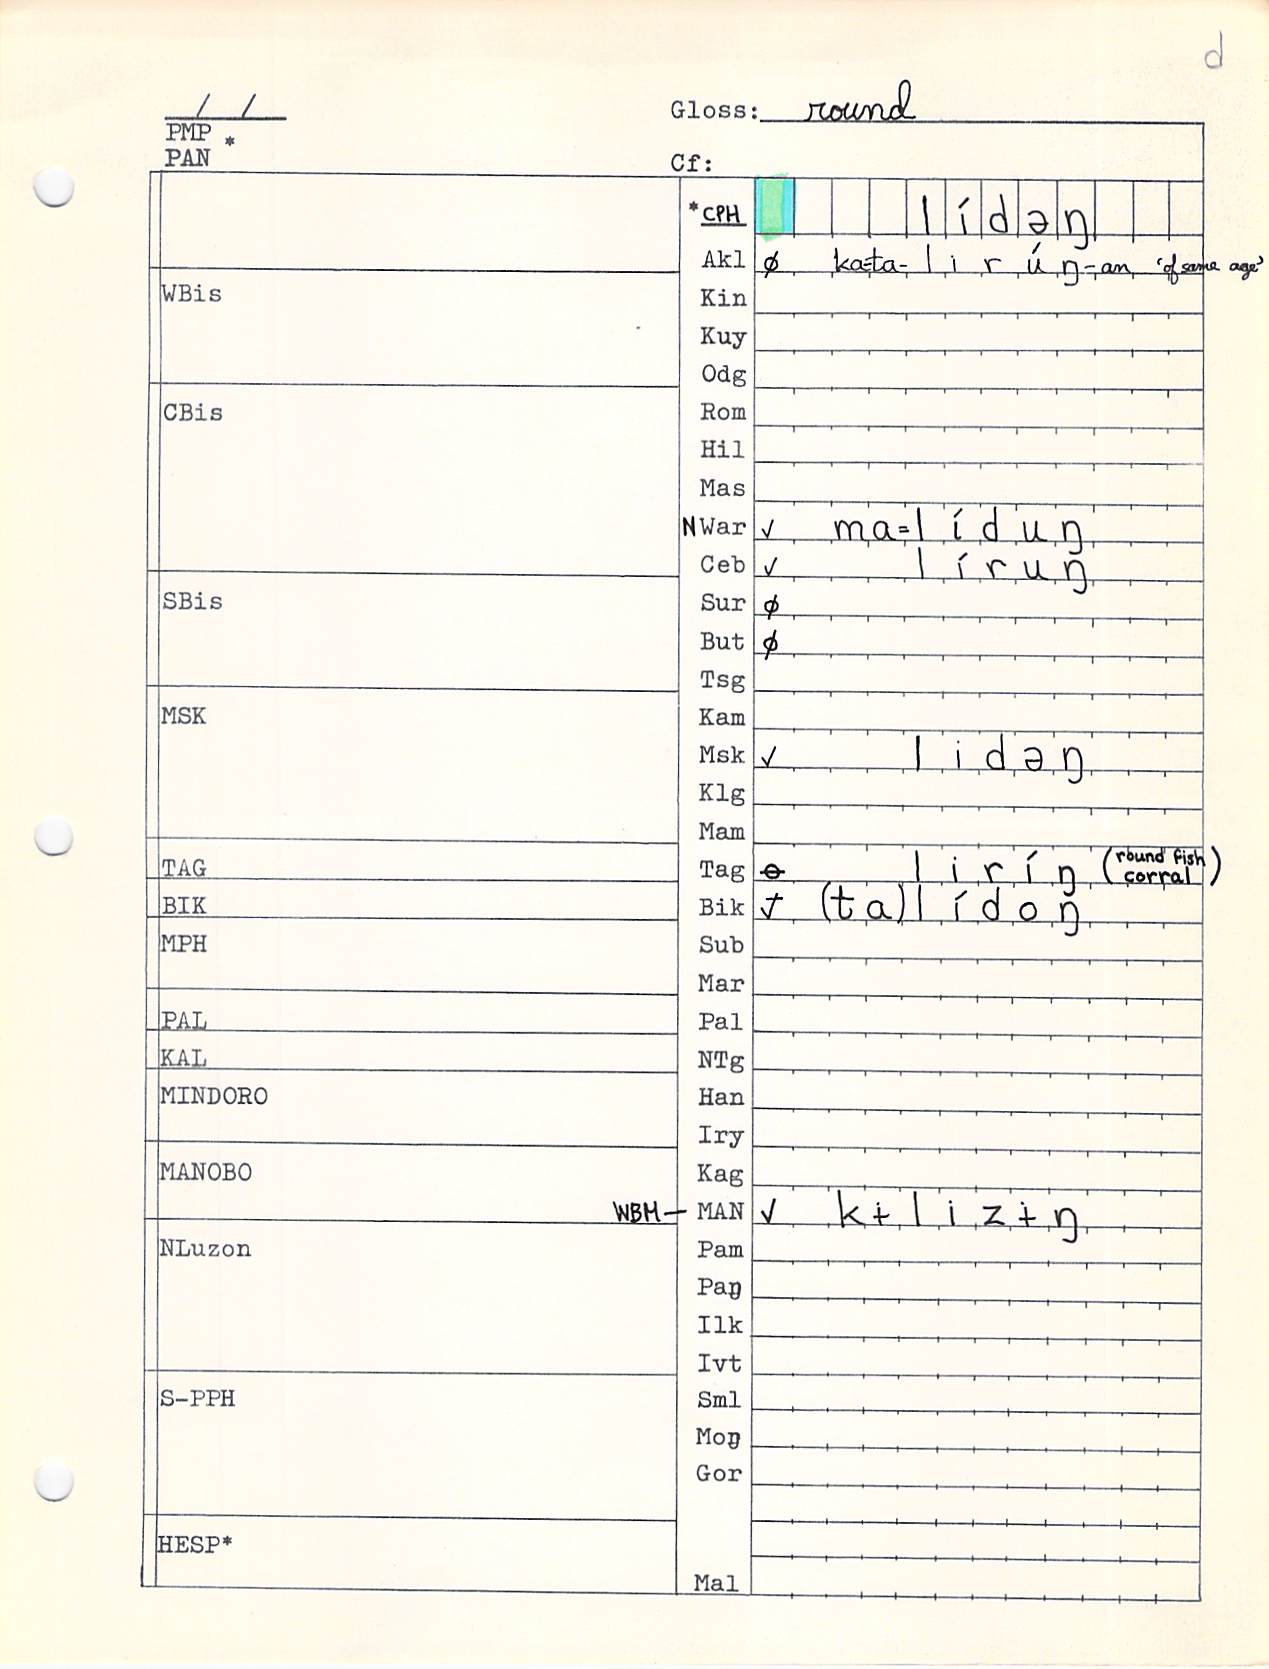 d
/ /
Gloss: round
PMP *
PAN
Cf:
*CPH lídəŋ
Akl ∅ ka=ta-lirúŋ-an 'of same age'
WBis
Kin
Kuy
Odg
CBis
Rom
Hil
Mas
NWar ✓ ma=líduŋ
Ceb ✓ líruŋ
SBis
Sur ∅
But ∅
Tsg
MSK
Kam
Msk ✓ lidəŋ
Klg
Mam
TAG
Tag ⊖ liríŋ (round fish corral)
BIK
Bik ✓ (ta)lídoŋ
MPH
Sub
Mar
PAL
Pal
KAL
NTg
MINDORO
Han
Iry
MANOBO
Kag
WBM— MAN ✓ kɨlizɨŋ
NLuzon
Pam
Paŋ
Ilk
Ivt
S-PPH
Sml
Moŋ
Gor
HESP*
Mal